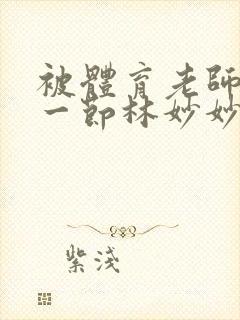 被體育老師
一節林妙妙
紫淺